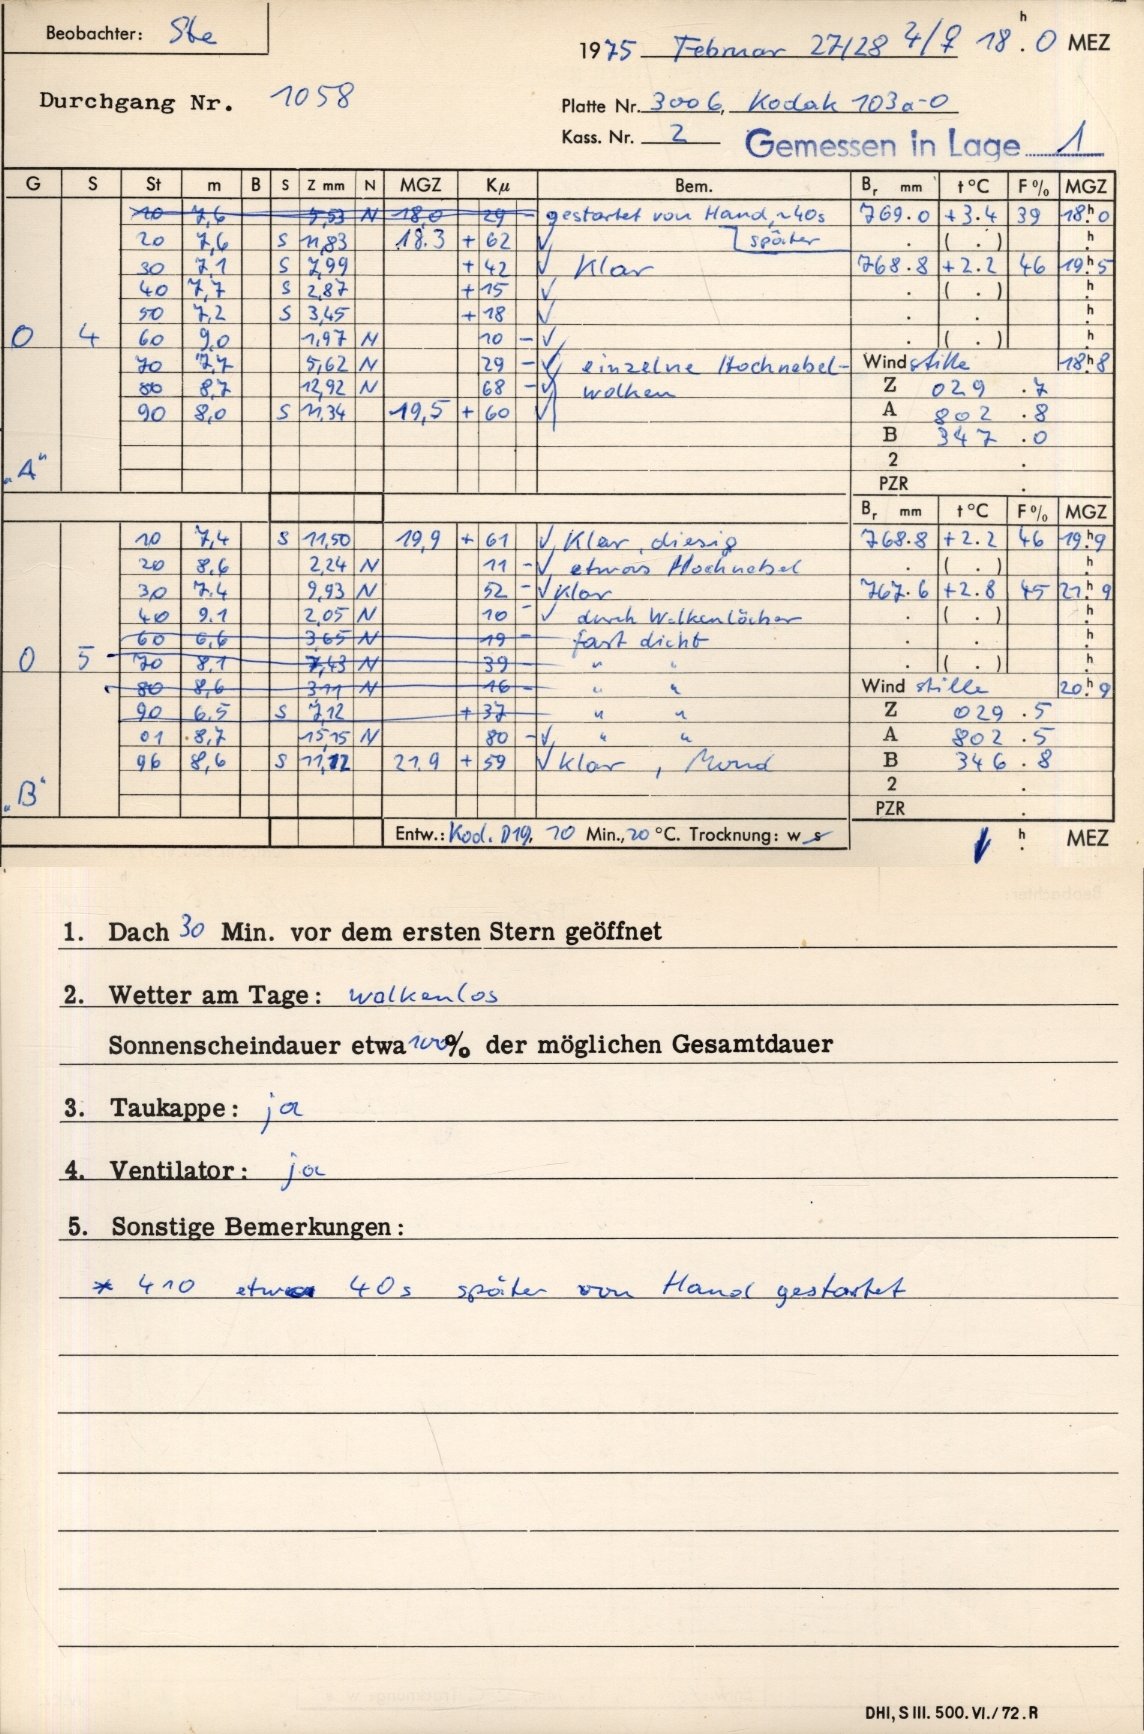 Beobachter: Ste
1975 Februar 27/28 4/♀ 18h.0 MEZ
Durchgang Nr. 1058
Platte Nr. 3006, Kodak 103a-0
Kass. Nr. 2 Gemessen in Lage 1
G S St m B S Z mm N MGZ Kμ Bem. Br mm t°C F% MGZ
10 7,6 5,53 N 18,0 29 - gestartet von Hand, ~40s 769.0 +3.4 39 18h.0
20 7,6 S 11,83 18.3 + 62 √ später . ( . ) h.
30 7.1 S 7,99 + 42 √ Klar 768.8 +2.2 46 19h.5
40 7,7 S 2,87 + 15 √ . ( . ) h.
50 7,2 S 3,45 + 18 √ . . h.
0 4 60 9,0 1,97 N 10 - √ . ( . ) h.
70 7,7 5,62 N 29 - √ einzelne Hochnebel- Wind stille 18h.8
80 8,7 12,92 N 68 - √ wolken Z 029 .7
90 8,0 S 11,34 19,5 + 60 √ A 802 .8
B 347 .0
„A“ 2 .
PZR .
Br mm t°C F% MGZ
10 7,4 S 11,50 19,9 + 61 √ Klar, diesig 768.8 +2.2 46 19h.9
20 8,6 2,24 N 11 - √ etwas Hochnebel . ( . ) h.
30 7.4 9,93 N 52 - √ Klar 767.6 +2.8 45 21h.9
40 9.1 2,05 N 10 - √ durch Wolkenlöcher . ( . ) h.
60 6,6 3,65 N 19 - fast dicht . . h.
0 5 70 8.1 7,43 N 39 - " " . ( . ) h.
80 8,6 3,11 N 16 - " " Wind stille 20h.9
90 6.5 S 7,12 + 37 " " Z 029 .5
01 8,7 15,15 N 80 - √ " " A 802 .5
96 8,6 S 11,12 21.9 + 59 √ Klar, Mond B 346 .8
„B“ 2 .
PZR .
Entw.: Kod. D19, 10 Min., 20 °C. Trocknung: w s h. MEZ
1. Dach 30 Min. vor dem ersten Stern geöffnet
2. Wetter am Tage: wolkenlos
Sonnenscheindauer etwa 100% der möglichen Gesamtdauer
3. Taukappe: ja
4. Ventilator: ja
5. Sonstige Bemerkungen:
* 410 etwa 40s später von Hand gestartet
DHI, S III. 500. VI./72. R